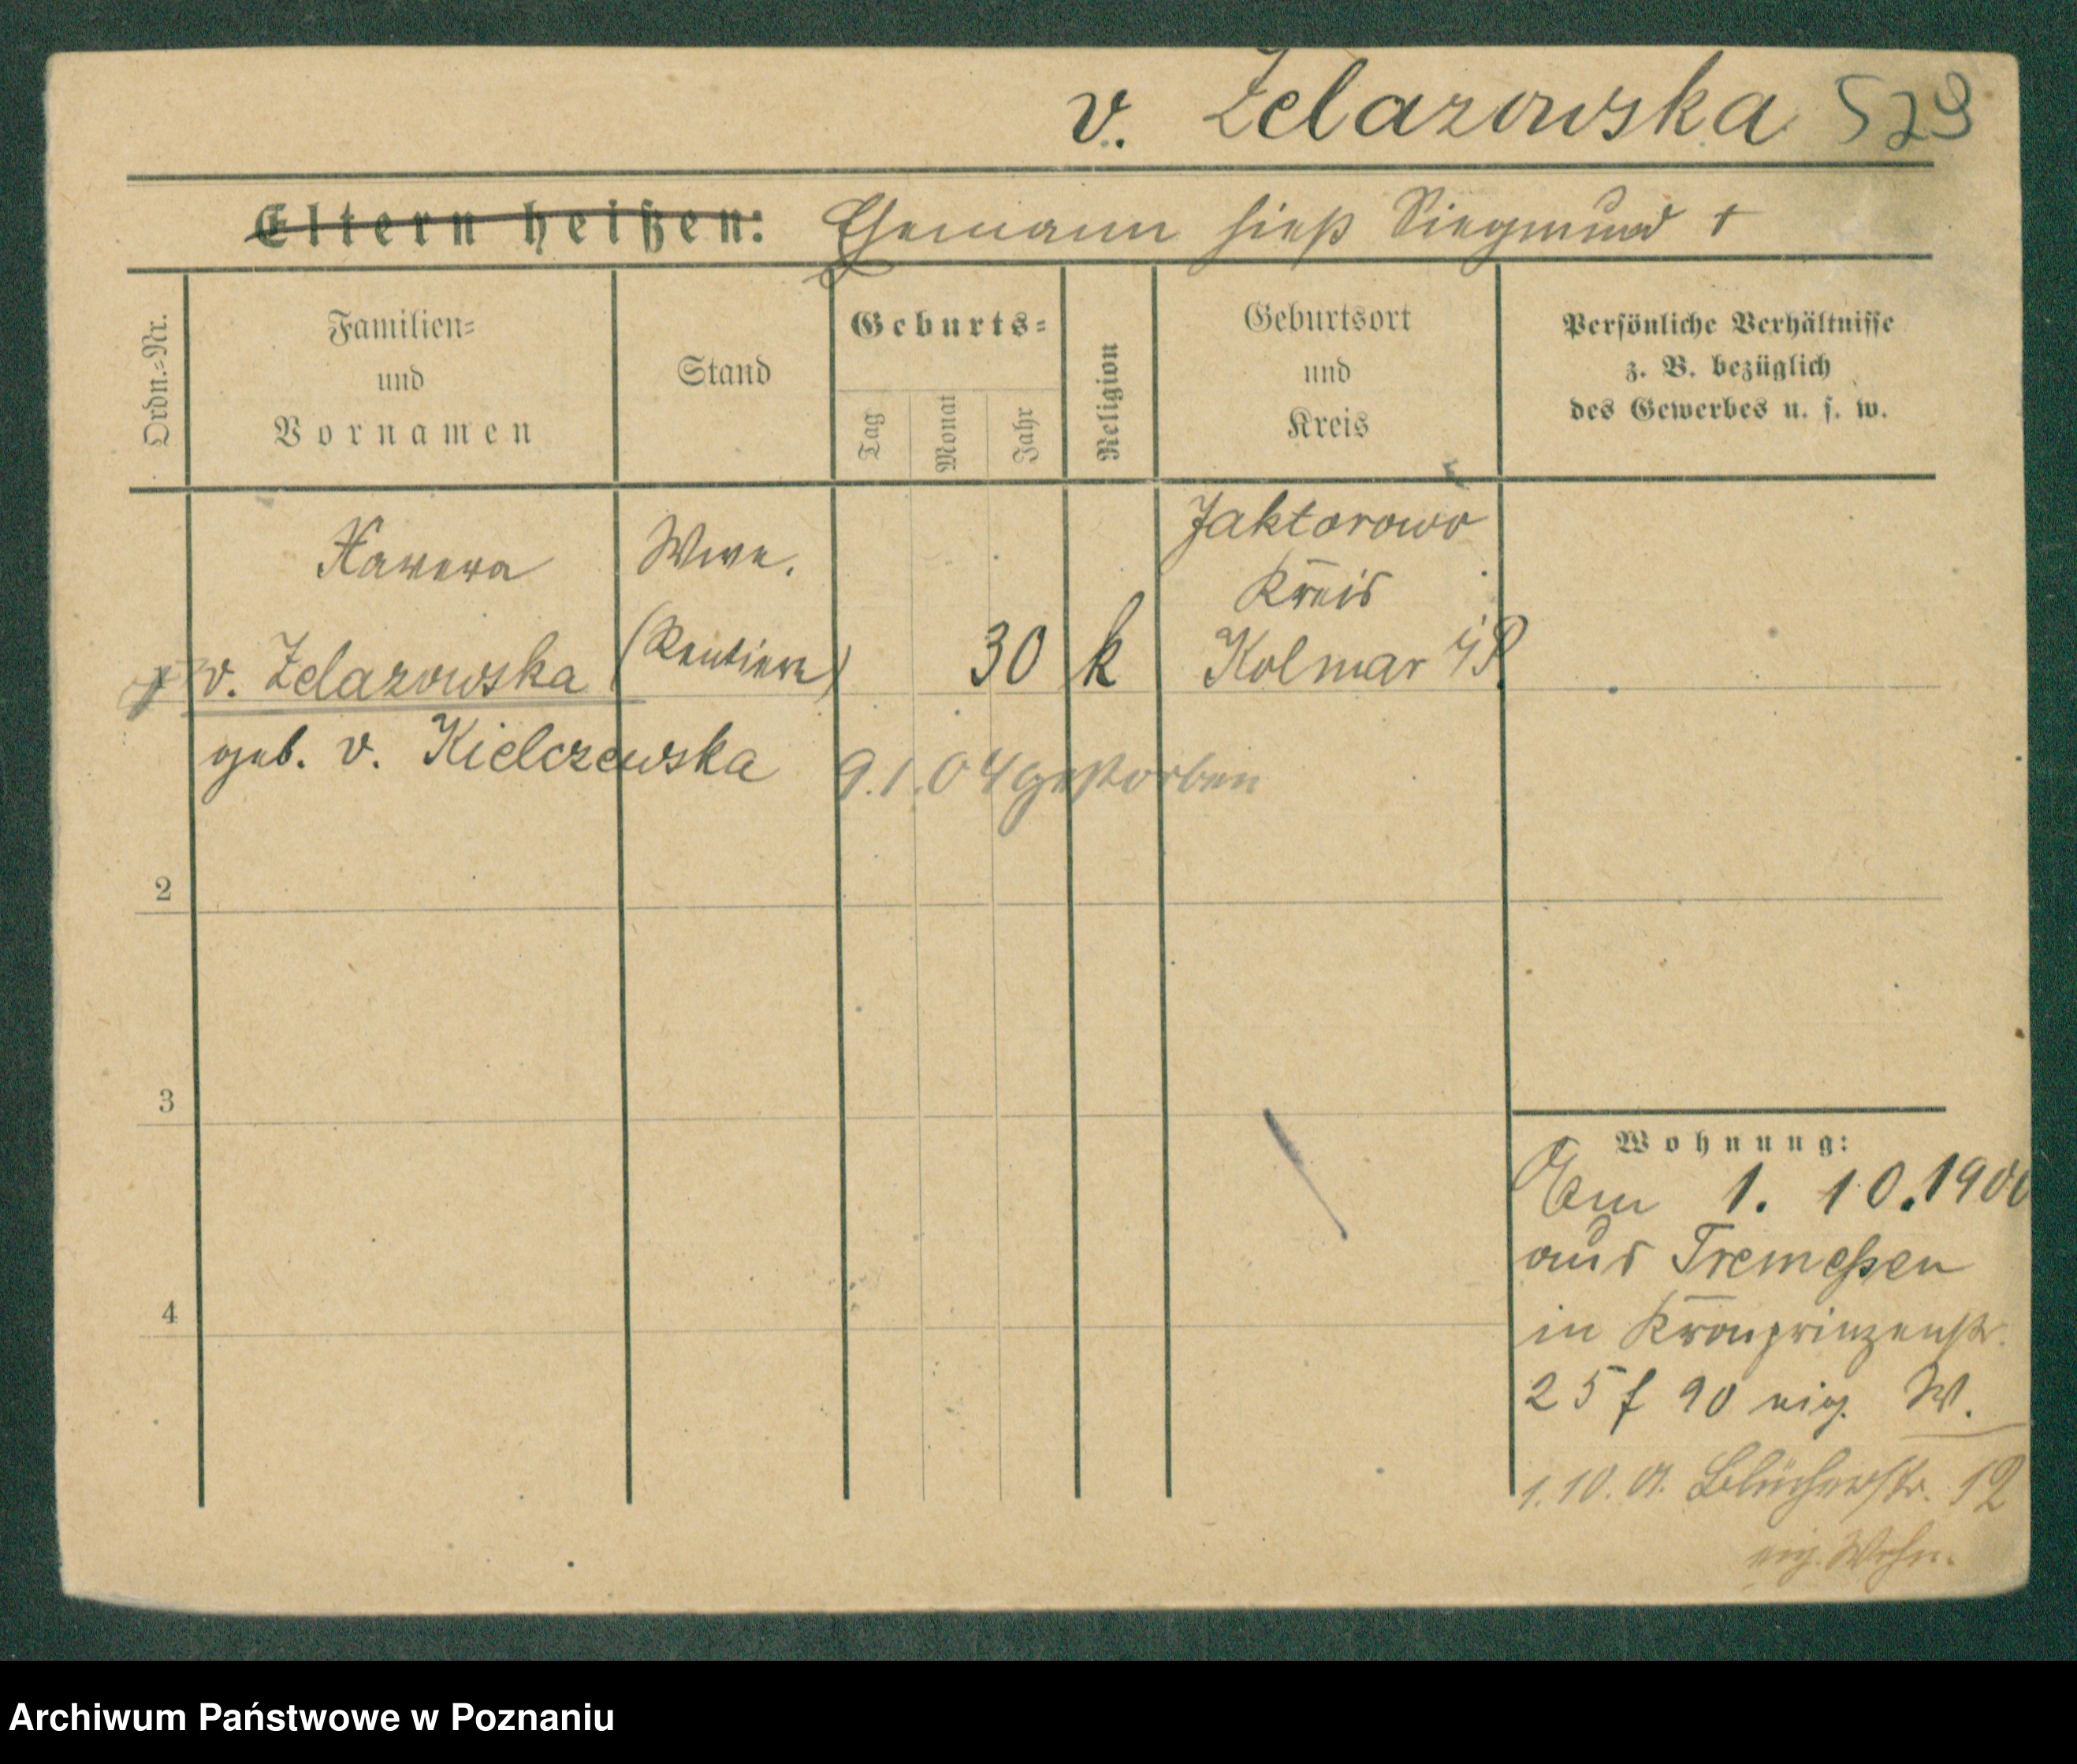 v. Żelazowska 529
Eltern heißen: Ehemann hieß Siegmund †
Ordn.-Nr.
Familien-
und
Vornamen
Stand
Geburts-
Tag
Monat
Jahr
Religion
Geburtsort
und
Kreis
Persönliche Verhältnisse
z. B. bezüglich
des Gewerbes u. s. w.
Xawera Wwe. Jaktorowo
Kreis
v. Żelazowska (Rentiere) 30 k Kolmar i/P.
geb. v. Kielczewska 9.1.04 gestorben
2
3
4
Wohnung:
Am 1. 10. 1900
aus Tremeßen
in Kronprinzenstr.
25 f 90 eig. W.
1.10.01. Blücherstr. 12
eig. Wohn.
Archiwum Państwowe w Poznaniu